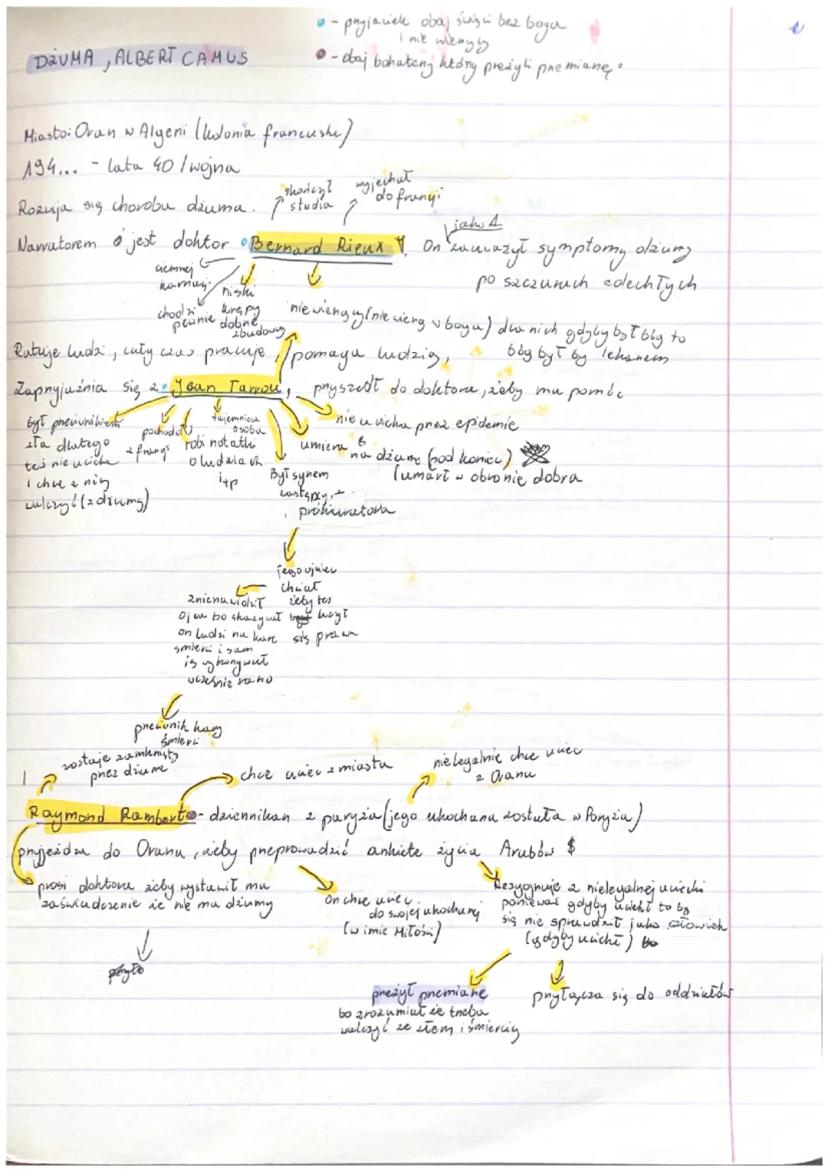 - przyjaciele obaj święci bez boga
i nie wierzący
- obaj bohaterzy którzy przeżyli przemianę
DŻUMA, ALBERT CAMUS
Miasto: Oran w Algerii (kolonia francuska)
194... - lata 40 / wojna
Rozwija się choroba dżuma.
skończył
studia
wyjechał
do francji
jako 1.
Narratorem jest doktor Bernard Rieux. On zauważył symptomy dżumy
po szczurach zdechłych
ciemnej
karnacji
chodzi
pewnie
niski
krępy
dobrze
zbudowany
nie wierzący (nie wierzą w boga) dla nich gdyby był bóg to
bóg był by lekarzem
Ratuje ludzi, cały czas pracuje, pomaga ludziom,
Zaprzyjaźnia się z Jean Tarrou, przyszedł do doktora, żeby mu pomóc
był przeciwnikiem
zła dlatego
też nie ucieka
i chce z nim
walczyć (z dżumą)
pochodzi
z francji
tajemnicza
osoba
robi notatki
o ludziach
itp
Był synem
zastępcy
prokuratora
umiera
na dżumę (pod koniec)
(umarł w obronie dobra
nie ucieka przez epidemie
jego ojciec
chciał
żeby też
uczył
się prawa
znienawidził
ojca bo skazywał
on ludzi na karę
śmierci i sam
ją wykonywał
wcześnie rano
przeciwnik kary
śmierci
zostaje zamknięty
przez dżumę
chce uciec z miasta
nielegalnie chce uciec
z Oranu
Raymond Rambert - dziennikarz z paryża (jego ukochana została w Paryżu)
przyjeżdża do Oranu, żeby przeprowadzić ankietę życia Arabów
prosi doktora żeby wystawił mu
zaświadczenie że nie ma dżumy
on chce uciec
do swojej ukochanej
(w imię Miłości)
Rezygnuje z nielegalnej ucieczki
ponieważ gdyby uciekł to by
się nie sprawdził jako człowiek
(gdyby uciekł)
przeżył przemianę
bo zrozumiał że trzeba
walczyć ze złem i śmiercią
przyłącza się do oddziałów